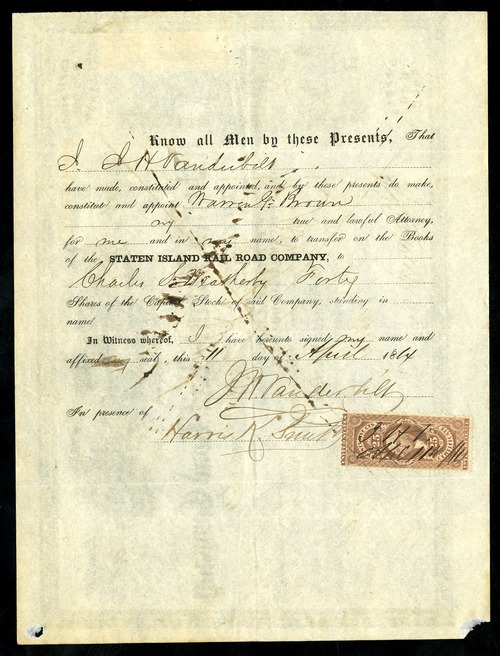 Know all Men by these Presents, That
I J H Vanderbilt
have made, constituted and appointed, and by these presents do make,
constitute and appoint Warren G. Brown
my true and lawful Attorney,
for me and in my name, to transfer on the Books
of the STATEN ISLAND RAIL ROAD COMPANY, to
Charles Weatherby Forty
Shares of the Capital Stock of said Company, standing in
name
In Witness whereof, I have hereunto signed my name and
affixed seal, this 11 day of April 1864
J H Vanderbilt
In presence of
Harris K. Smith
25 25